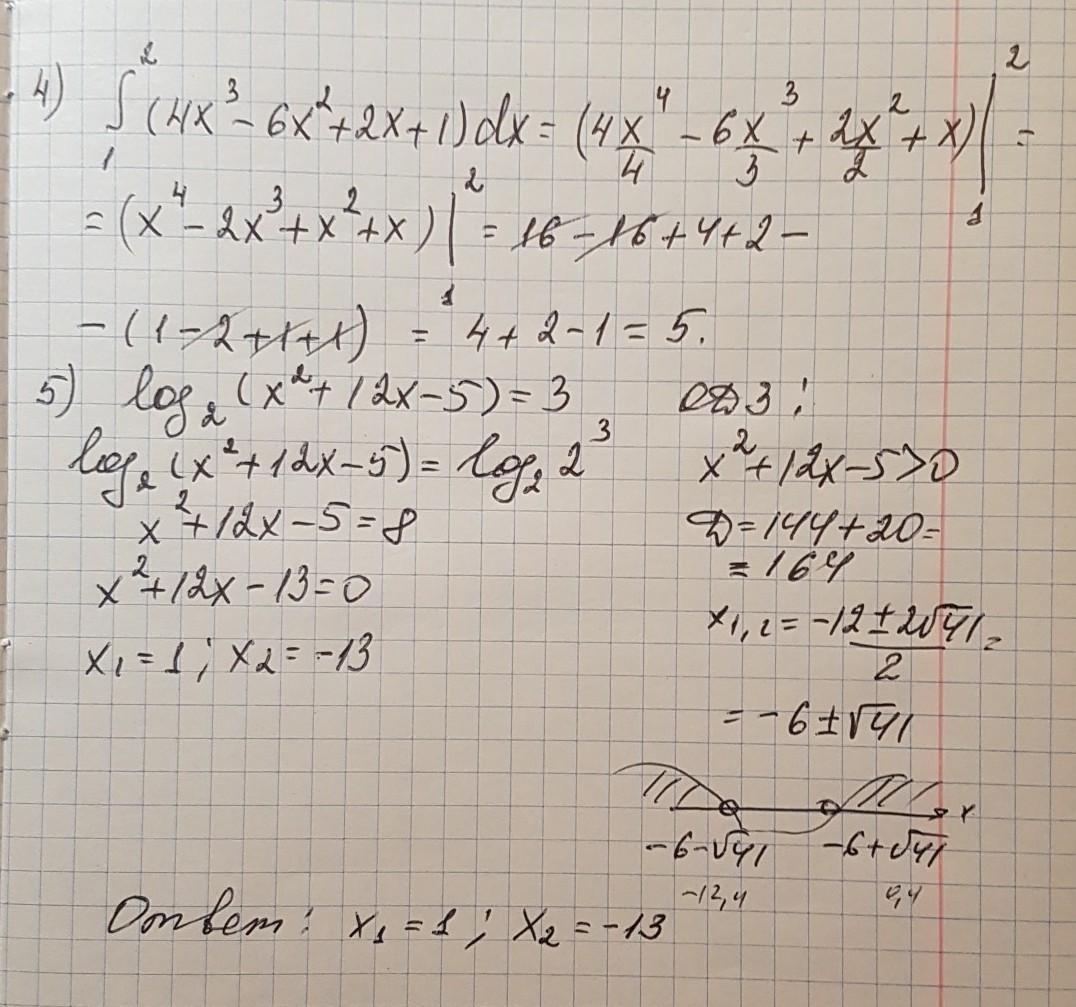 4) ∫₁² (4x³ - 6x² + 2x + 1) dx = (4x⁴/4 - 6x³/3 + 2x²/2 + x) |₁² =
= (x⁴ - 2x³ + x² + x) |₁² = 16 - 16 + 4 + 2 -
- (1 - 2 + 1 + 1) = 4 + 2 - 1 = 5.
5) log₂ (x² + 12x - 5) = 3
log₂ (x² + 12x - 5) = log₂ 2³
x² + 12x - 5 = 8
x² + 12x - 13 = 0
x₁ = 1 ; x₂ = -13
ОДЗ :
x² + 12x - 5 > 0
D = 144 + 20 =
= 164
x₁,₂ = (-12 ± 2√41)/2 =
= -6 ± √41
x
-6-√41 -6+√41
-12,4 0,4
Ответ : x₁ = 1 ; x₂ = -13